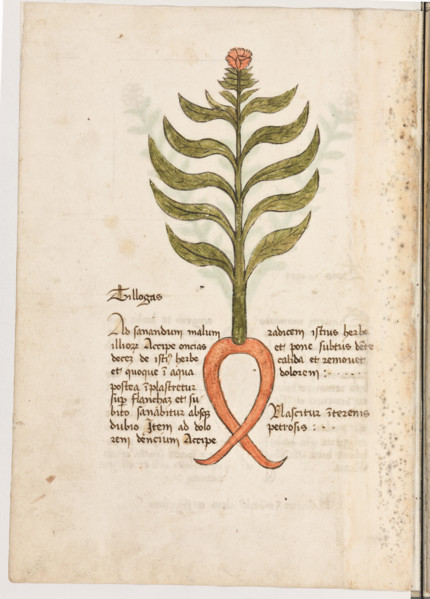 Tillogas
Ad sanandum malum
illior Accipe oncias
decez de isti herbe
et quoque ī aqua
postea īplastretur
sup flanchaz et su
bito sanabitur absq
dubio Item ad dolo
rem dencium Accipe
radicem istius herbe
et pone subtus dēte
calida et removet
dolorem :- . . . . .
Nascitur īterenis
petrosis : . -